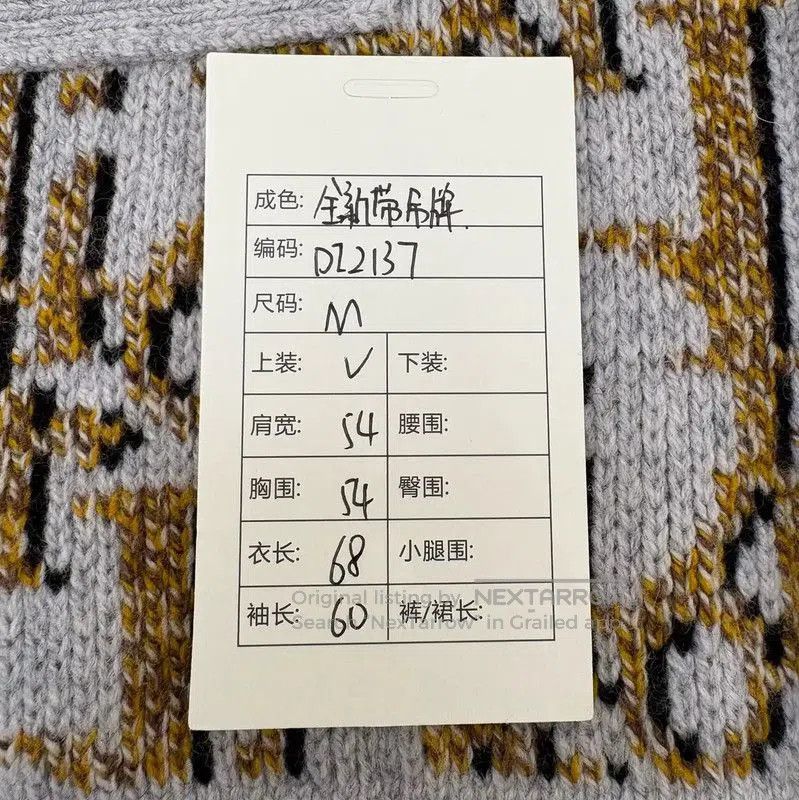 成色: 全新带吊牌.
编码: DZ2137
尺码: M
上装: ✓ 下装:
肩宽: 54 腰围:
胸围: 54 臀围:
衣长: 68 小腿围:
Original listing by NEXTARRO
袖长: 60 裤/裙长:
Search "NexTarrow" in Grailed